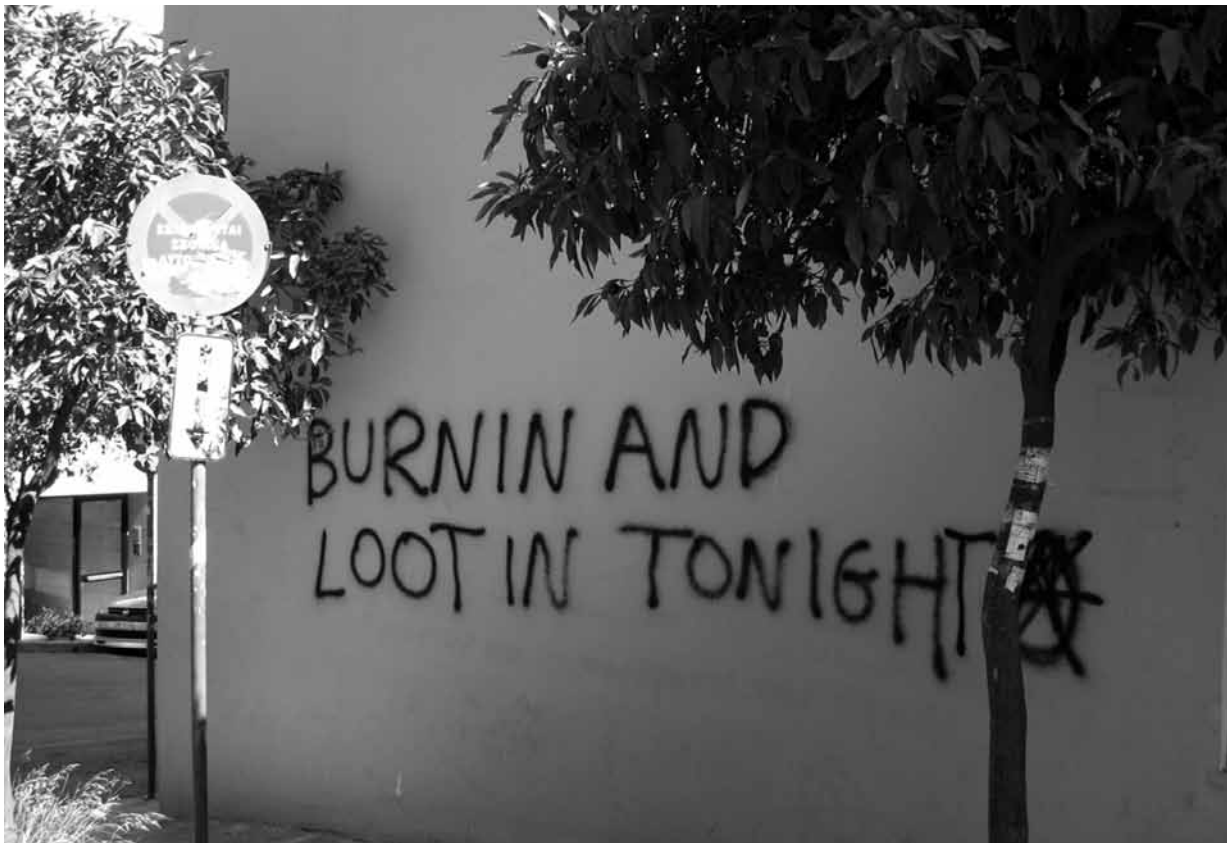 BURNIN AND
LOOTIN TONIGHT